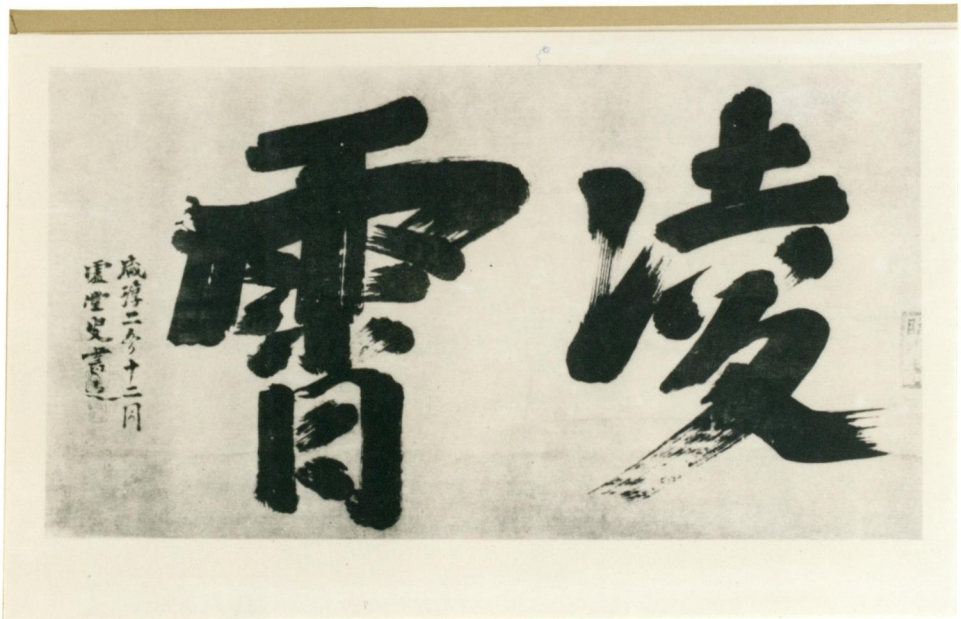 凌霄
咸淳二年十二月
虛堂叟書